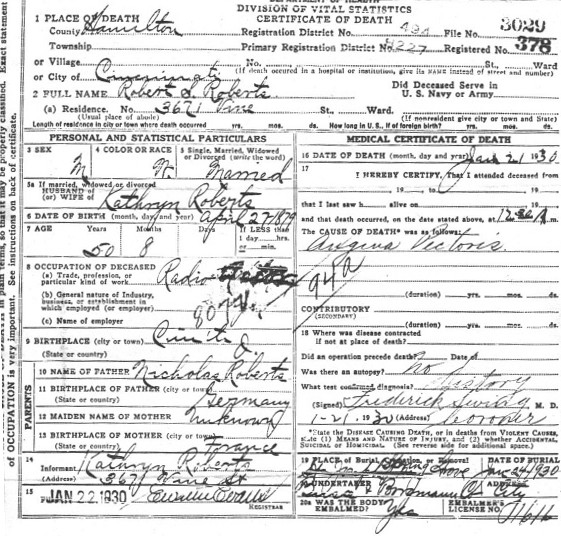 DIVISION OF VITAL STATISTICS
CERTIFICATE OF DEATH
1 PLACE OF DEATH
County Hamilton Registration District No. 494 File No. 3029
Township Primary Registration District No. 8227 Registered No. 378
or Village No. St., Ward
or City of Cincinnati (If death occurred in a hospital or institution, give its NAME instead of street and number)
2 FULL NAME Robert Roberts Did Deceased Serve in U. S. Navy or Army
(a) Residence. No. 3671 Vine St., Ward.
(Usual place of abode) (If nonresident give city or town and State)
Length of residence in city or town where death occurred yrs. mos. ds. How long in U. S., if of foreign birth? yrs. mos. ds.
PERSONAL AND STATISTICAL PARTICULARS
3 SEX M
4 COLOR OR RACE W
5 Single, Married, Widowed or Divorced (write the word) Married
5a If married, widowed or divorced
HUSBAND of
(or) WIFE of Kathryn Roberts
6 DATE OF BIRTH (month, day, and year) April 27 1879
7 AGE Years Months Days If LESS than 1 day hrs. or min.
50 8
8 OCCUPATION OF DECEASED
(a) Trade, profession, or particular kind of work Radio
(b) General nature of Industry, business, or establishment in which employed (or employer)
(c) Name of employer
9 BIRTHPLACE (city or town) Cinti O
(State or country)
PARENTS
10 NAME OF FATHER Nicholas Roberts
11 BIRTHPLACE OF FATHER (city or town)
(State or country) Germany
12 MAIDEN NAME OF MOTHER Unknown
13 BIRTHPLACE OF MOTHER (city or town)
(State or country) France
14 Informant Kathryn Roberts
(Address) 3671 Vine St
15 JAN 22 1930
REGISTRAR
MEDICAL CERTIFICATE OF DEATH
16 DATE OF DEATH (month, day and year) Jan 21 1930
17 I HEREBY CERTIFY, That I attended deceased from
, 19 , to , 19
that I last saw h alive on , 19
and that death occurred, on the date stated above, at
The CAUSE OF DEATH* was as follows:
Angina Pectoris
94a
(duration) yrs. mos. ds.
CONTRIBUTORY
(SECONDARY)
(duration) yrs. mos. ds.
18 Where was disease contracted
if not at place of death?
Did an operation precede death? Date of
Was there an autopsy? No
What test confirmed diagnosis? History
(Signed) Frederick M. D.
1-21, 1930 (Address) Coroner
*State the DISEASE CAUSING DEATH, or in deaths from VIOLENT CAUSES, state (1) MEANS AND NATURE OF INJURY, and (2) whether ACCIDENTAL, SUICIDAL or HOMICIDAL. (See reverse side for additional space.)
19 PLACE OF BURIAL, Cremation, or Removal DATE OF BURIAL
Spring Grove Jan 24 1930
20 UNDERTAKER ADDRESS
& Borgmann City
20a WAS THE BODY EMBALMED? Yes EMBALMER'S LICENSE No.
of OCCUPATION is very important. See instructions on back of certificate.
in plain terms, so that it may be properly classified. Exact statement